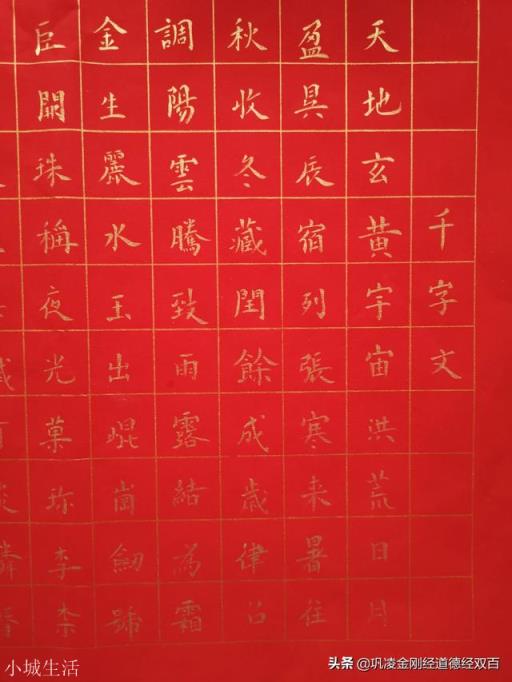 千字文
天地玄黄宇宙洪荒日月
盈昃辰宿列張寒来暑往
秋收冬藏閏餘成歳律吕
調陽雲騰致雨露結為霜
金生麗水玉出崐崗劒號
巨闕珠稱夜光菓珎李柰
小城生活
头条 @巩凌金刚经道德经双百